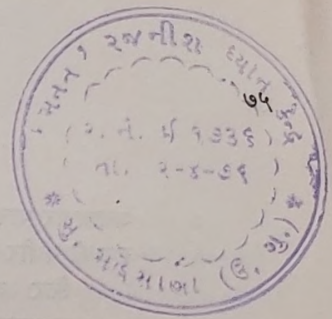 ( મનન ) રજનીશ ધ્યાન કેન્દ્ર
૭૫
( ર. નં. ઈ ૧૩૩૬ )
તા. ૨-૪-૭૬
* મુ. મહેસાણા (ઉ. ગુ.) *